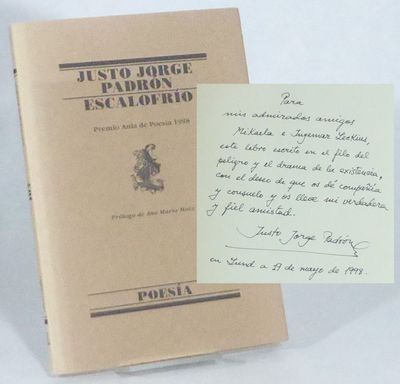 JUSTO JORGE
PADRÓN
ESCALOFRÍO
Premio Aula de Poesía 1998
Prólogo de Ana María Moix
POESÍA
Para
mis admirados amigos
Mikaela e Ingemar Leckius,
este libro escrito en el filo del
peligro y el drama de la existencia,
con el deseo de que os dé compañía
y consuelo y os lleve mi verdadera
y fiel amistad.
Justo Jorge Padrón
en Lund a 19 de mayo de 1998.